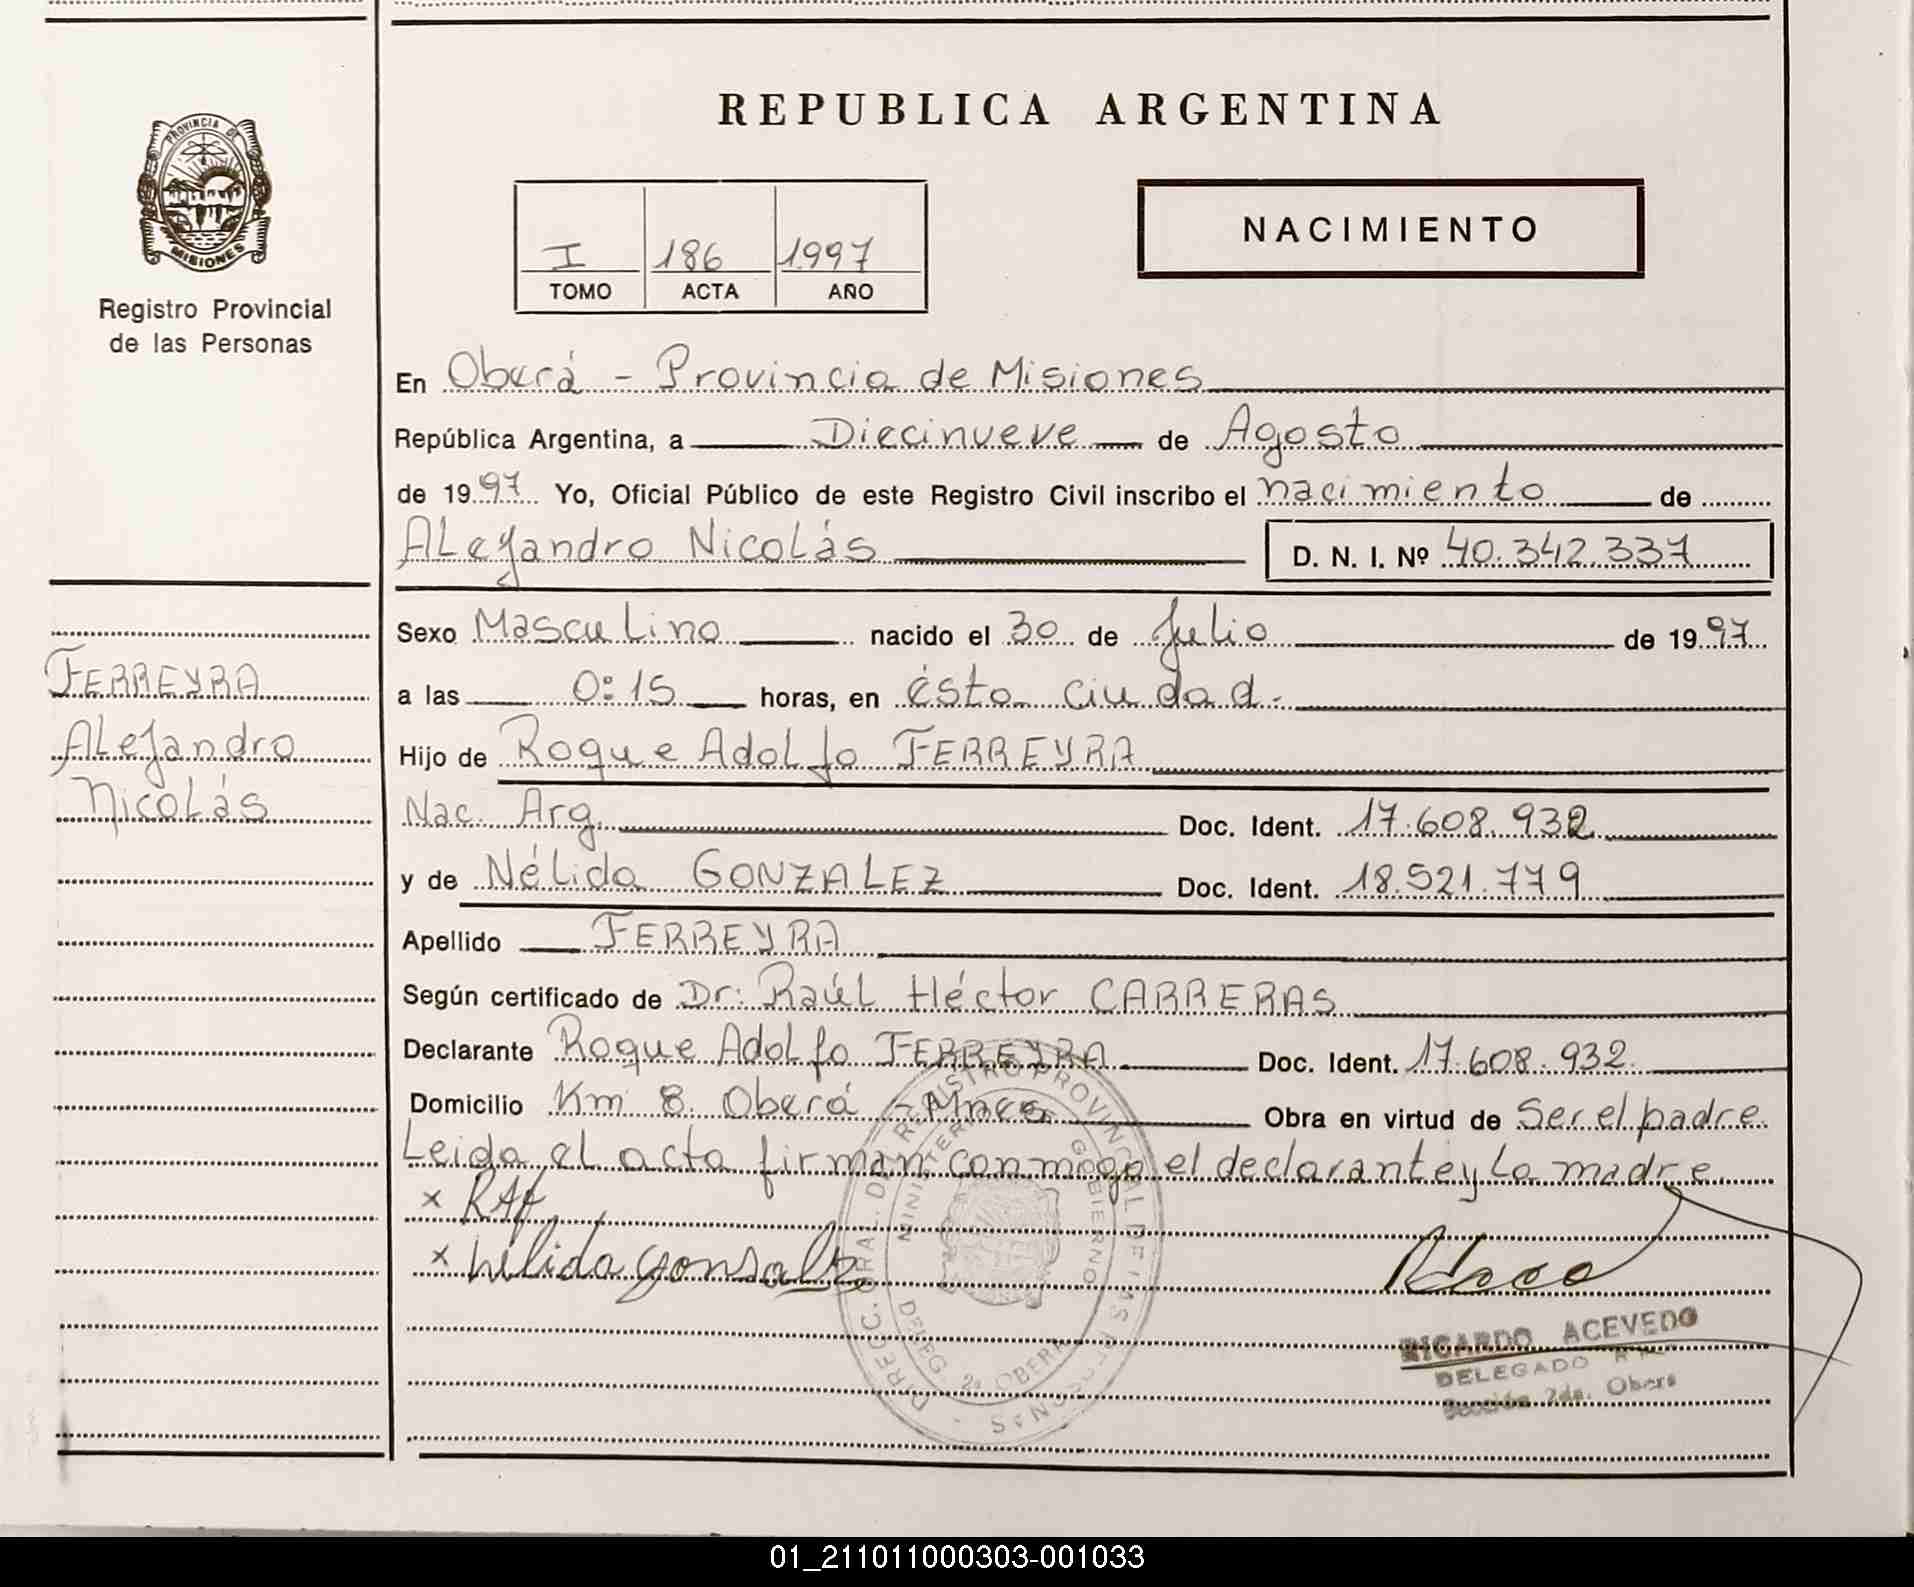 REPUBLICA ARGENTINA
PROVINCIA DE
MISIONES
Registro Provincial
de las Personas
NACIMIENTO
I 186 1997
TOMO ACTA AÑO
En Oberá - Provincia de Misiones
República Argentina, a Diecinueve de Agosto
de 1997 Yo, Oficial Público de este Registro Civil inscribo el nacimiento de
Alejandro Nicolás D. N. I. Nº 40.342.337
Sexo Masculino nacido el 30 de Julio de 1997
FERREYRA
Alejandro
Nicolás
a las 0:15 horas, en ésta ciudad.
Hijo de Roque Adolfo FERREYRA
Nac. Arg. Doc. Ident. 17.608.932
y de Nélida GONZALEZ Doc. Ident. 18.521.779
Apellido FERREYRA
Según certificado de Dr: Raúl Héctor CARRERAS
Declarante Roque Adolfo FERREYRA Doc. Ident. 17.608.932
Domicilio Km 8 Oberá - Mnes. Obra en virtud de Ser el padre
Leida el acta firman conmigo el declarante y la madre
x RAF
x Nélida Gonsalz
DIRECC. GRAL. DEL REGISTRO PROVINCIAL DE LAS PERSONAS
MINISTERIO DE GOBIERNO
DELEG. 2ª OBERA
RICARDO ACEVEDO
DELEGADO
Sección 2da. Obera
01_211011000303-001033